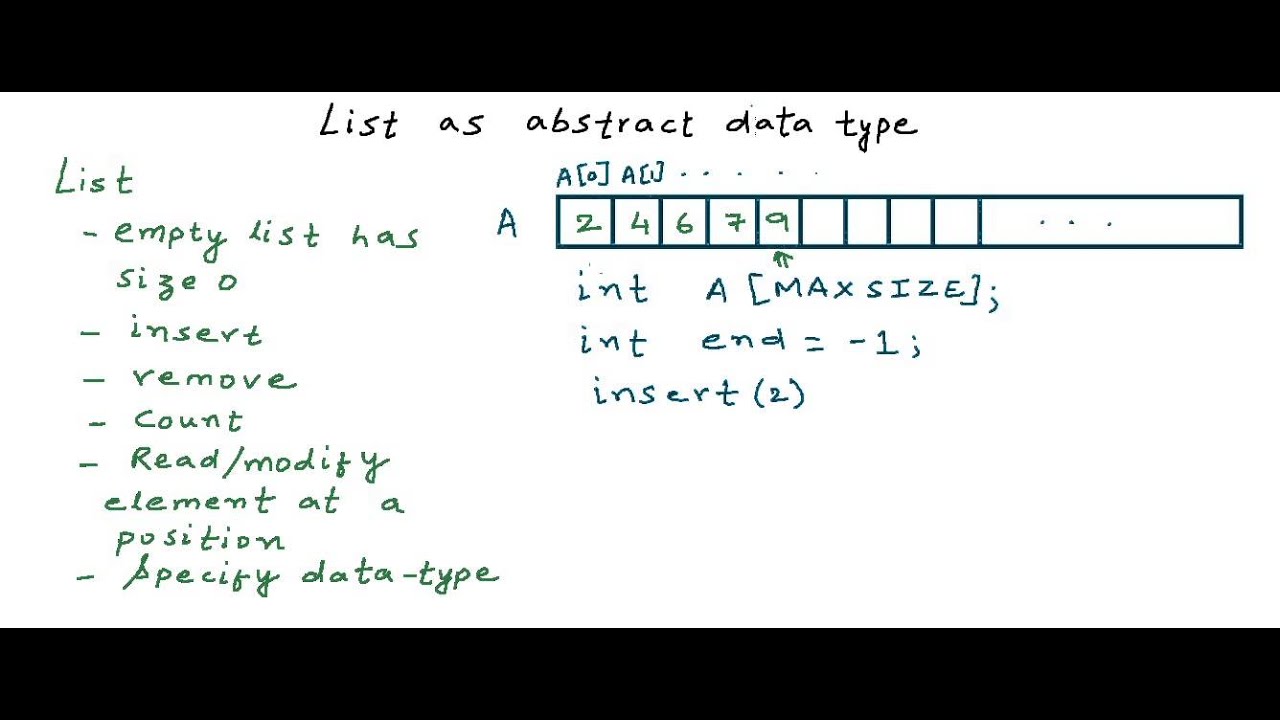 List as abstract data type
List
- empty list has
size 0
- insert
- remove
- Count
- Read/modify
element at a
position
- Specify data-type
A[0] A[1] . . . .
A 2 4 6 7 9 . . .
int A [MAXSIZE];
int end = -1;
insert (2)